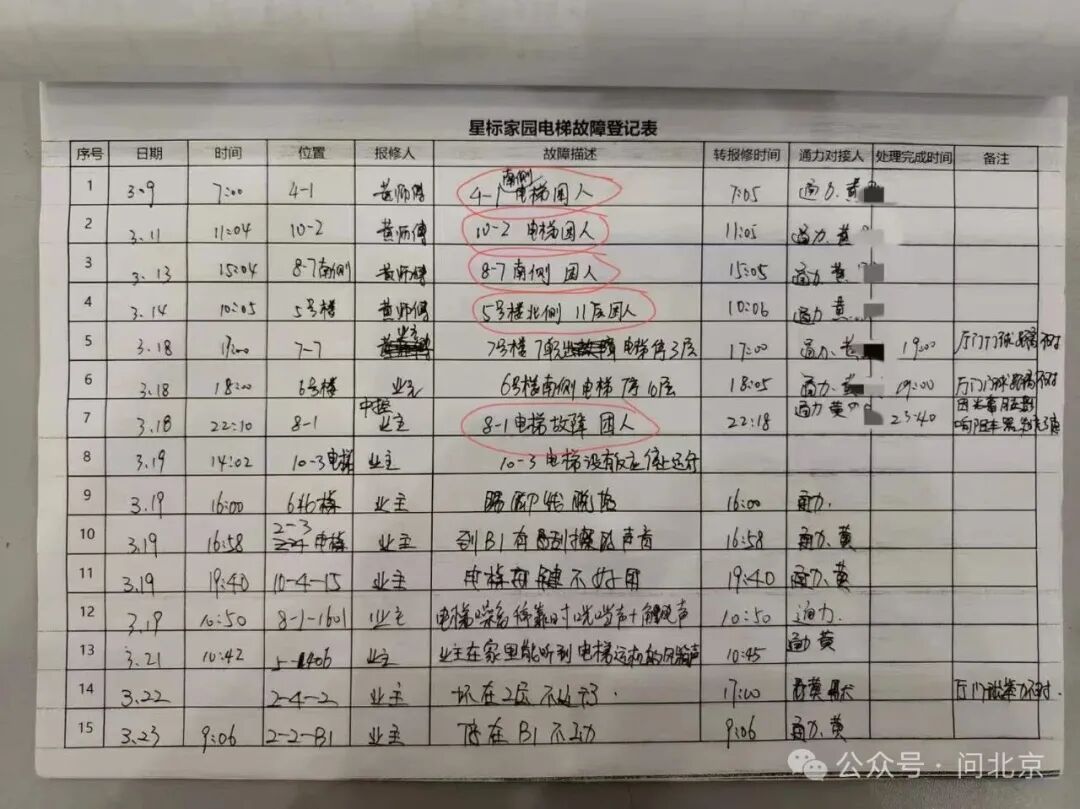 星标家园电梯故障登记表
序号 日期 时间 位置 报修人 故障描述 转报修时间 通力对接人 处理完成时间 备注
1 3.9 7:00 4-1 黄师傅 4-1南侧电梯困人 7:05 通力.黄
2 3.11 11:04 10-2 黄师傅 10-2 电梯困人 11:05 通力.黄
3 3.13 15:04 8-7南侧 黄师傅 8-7南侧 困人 15:05 通力.黄
4 3.14 10:05 5号楼 黄师傅 5号楼北侧 11层困人 10:06 通力.黄
5 3.18 17:00 7-7 业主 7号楼7单 电梯停3层 17:00 通力.黄 19:00 厅门门球
6 3.18 18:00 6号楼 业主 6号楼南侧电梯 停10层 18:05 通力.黄 19:00 厅门门球
7 3.18 22:10 8-1 中控 业主 8-1电梯故障 困人 22:18 通力黄 23:40
8 3.19 14:02 10-3电梯 业主 10-3电梯没有反应停止运行
9 3.19 16:00 业主 16:00 通力.
10 3.19 16:58 2-3 电梯 业主 到B1有 声音 16:58 通力.黄
11 3.19 19:40 10-4-15 业主 电梯按键不好用 19:40 通力.黄
12 3.19 10:50 8-1-1601 业主 电梯噪音 10:50 通力.
13 3.21 10:42 5-1406 业主 业主在家里能听到电梯运行的 声 10:45 通力 黄
14 3.22 2-4-2 业主 坏在2层 17:00 厅门
15 3.23 9:06 2-2-B1 业主 停在B1不动 9:06 通力.黄
公众号·问北京